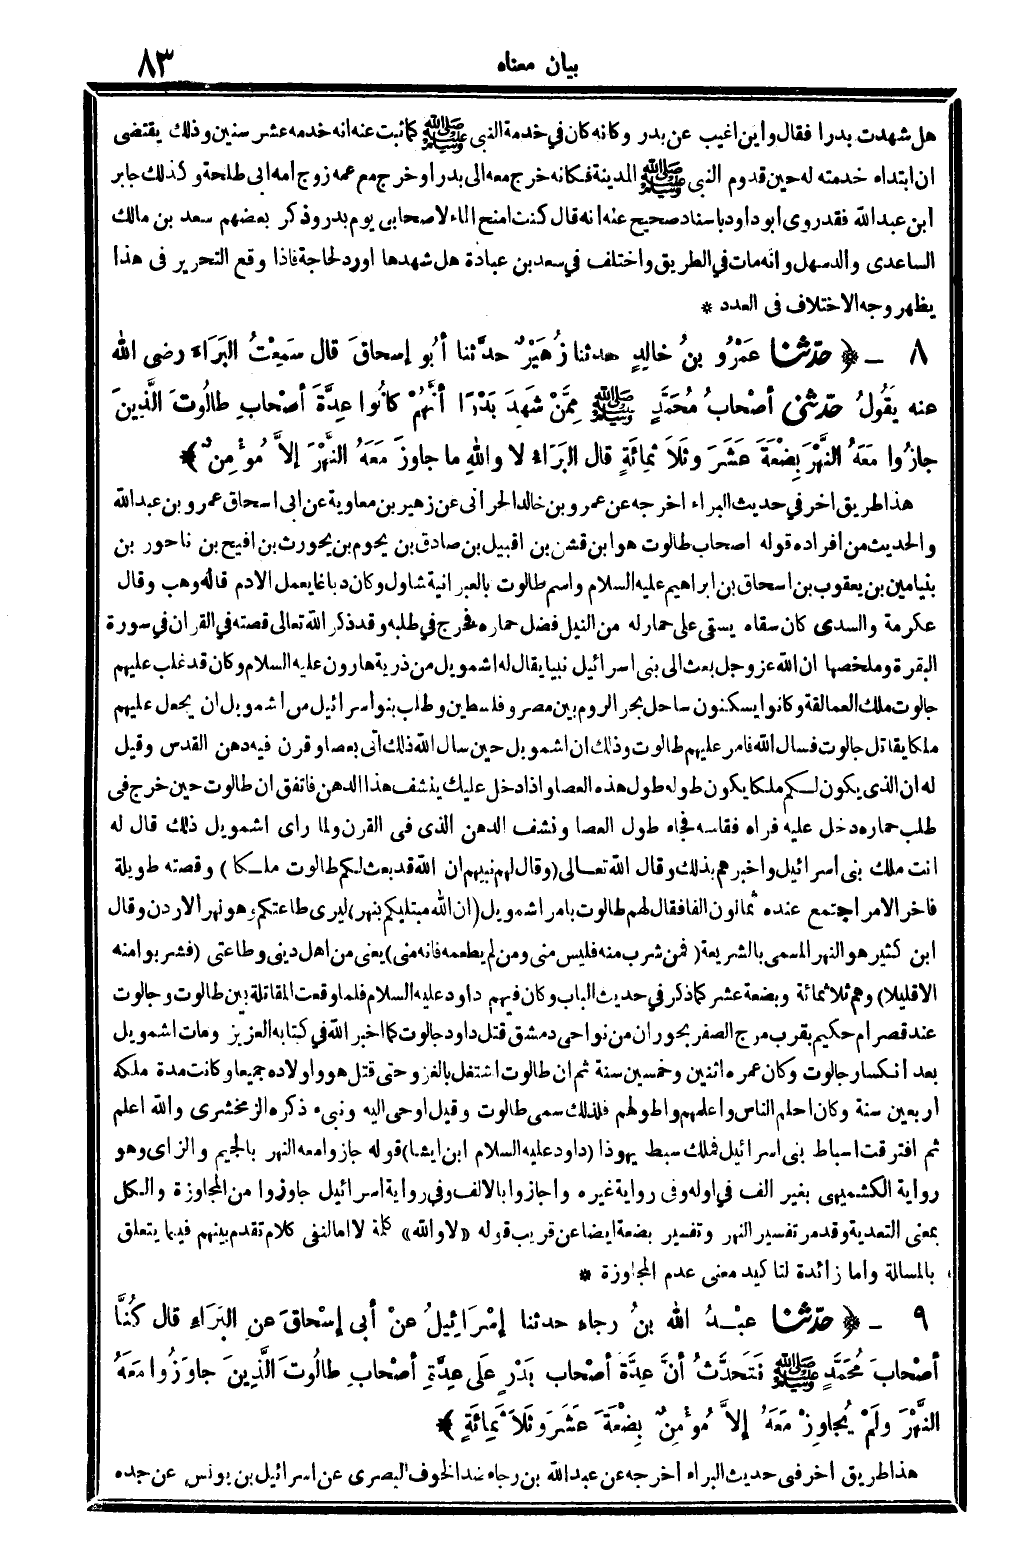 بيان معناه ٨٣
هل شهدت بدرا فقال واين اغيب عن بدر وكانه كان في خدمة النبي ﷺ كما ثبت عنه انه خدمه عشر سنين وذلك يقتضى
ان ابتداء خدمته له حين قدوم النبي ﷺ المدينة فكانه خرج معه الى بدر او خرج مع عمه زوج امه ابى طلحة وكذلك جابر
ابن عبد الله فقد روى ابو داود باسناد صحيح عنه انه قال كنت امنح الماء لاصحابى يوم بدر وذكر بعضهم سعد بن مالك
الساعدى والد سهل وانه مات في الطريق واختلف في سعد بن عبادة هل شهدها اورد لحاجة فاذا وقع التحرير فى هذا
يظهر وجه الاختلاف فى العدد *
٨ ـ ﴿ حدّثنا عَمْرُو بنُ خالِدٍ حدثنا زُهَيْرٌ حدّثنا أبُو إسحاقَ قال سَمِعْتُ البَرَاءَ رضى الله
عنه يَقُولُ حدّثنى أصْحابُ مُحَمَّدٍ ﷺ مِمَّنْ شَهِدَ بَدْرًا أنَّهُمْ كانُوا عِدَّةَ أصْحابِ طالُوتَ الَّذِينَ
جازُوا مَعَهُ النَّهْرَ بِضْعَةَ عَشَرَ وثَلاَثَمِائَةٍ قال البَرَاءُ لا واللهِ ما جاوزَ مَعَهُ النَّهْرَ إلاَّ مُؤْمِنٌ ﴾
هذا طريق اخر في حديث البراء اخرجه عن عمرو بن خالد الحرانى عن زهير بن معاوية عن ابى اسحاق عمرو بن عبد الله
والحديث من افراده قوله اصحاب طالوت هو ابن قشن بن اقبيل بن صادق بن يحوم بن يحورث بن افيح بن ناحور بن
بنيامين بن يعقوب بن اسحاق بن ابراهيم عليه السلام واسم طالوت بالعبرانية شاول وكان دباغا يعمل الادم قاله وهب وقال
عكرمة والسدى كان سقاء يسقى على حمار له من النيل فضل حماره فخرج في طلبه وقد ذكر الله تعالى قصته في القران في سورة
البقرة وملخصها ان الله عز وجل بعث الى بنى اسرائيل نبيا يقال له اشمويل من ذرية هارون عليه السلام وكان قد غلب عليهم
جالوت ملك العمالقة وكانوا يسكنون ساحل بحر الروم بين مصر وفلسطين وطلب بنو اسرائيل من اشمويل ان يجعل عليهم
ملكا يقاتل جالوت فسال الله فامر عليهم طالوت وذلك ان اشمويل حين سال الله ذلك اتى بعصا وقرن فيه دهن القدس وقيل
له ان الذى يكون لكم ملكا يكون طوله طول هذه العصا واذا دخل عليك ينشف هذا الدهن فاتفق ان طالوت حين خرج فى
طلب حماره دخل عليه فراه فقاسه فجاء طول العصا ونشف الدهن الذى فى القرن ولما راى اشمويل ذلك قال له
انت ملك بنى اسرائيل واخبرهم بذلك وقال الله تعالى (وقال لهم نبيهم ان الله قد بعث لكم طالوت ملكا) وقصته طويلة
فاخر الامر اجتمع عنده ثمانون الفا فقال لهم طالوت بامر اشمويل (ان الله مبتليكم بنهر) ليرى طاعتكم وهو نهر الاردن وقال
ابن كثير هو النهر المسمى بالشريعة (فمن شرب منه فليس منى ومن لم يطعمه فانه منى) يعنى من اهل دينى وطاعتى (فشربوا منه
الا قليلا) وهم ثلاثمائة وبضعة عشر كما ذكر في حديث الباب وكان فيهم داود عليه السلام فلما وقعت المقاتلة بين طالوت وجالوت
عند قصر ام حكيم بقرب مرج الصفر بحوران من نواحى دمشق قتل داود جالوت كما اخبر الله في كتابه العزيز ومات اشمويل
بعد انكسار جالوت وكان عمره اثنين وخمسين سنة ثم ان طالوت اشتغل بالغزو حتى قتل هو واولاده جميعا وكانت مدة ملكه
اربعين سنة وكان احلم الناس واعلمهم واطولهم فلذلك سمى طالوت وقيل اوحى اليه ونبىء ذكره الزمخشرى والله اعلم
ثم افترقت اسباط بنى اسرائيل فملك سبط يهوذا (داود عليه السلام ابن ايشا) قوله جازوا معه النهر بالجيم والزاى وهو
رواية الكشميهى بغير الف في اوله وفى رواية غيره واجازوا بالالف وفي رواية اسرائيل جاوزوا من المجاوزة والكل
بمعنى التعدية وقد مر تفسير النهر وتفسير بضعة ايضا عن قريب قوله «لا والله» كلمة لا امالنفى كلام تقدم بينهم فيما يتعلق
بالمسالة واما زائدة لتاكيد معنى عدم المجاوزة *
٩ ـ ﴿ حدّثنا عبْدُ الله بنُ رجاءٍ حدثنا إسْرَائِيلُ عنْ أبى إسْحاقَ عنِ البَرَاءِ قال كُنَّا
أصْحابَ مُحَمَّدٍ ﷺ نَتَحَدَّثُ أنَّ عِدَّةَ أصْحابِ بَدْرٍ عَلَى عِدَّةِ أصْحابِ طالُوتَ الَّذِينَ جاوَزُوا مَعَهُ
النَّهْرَ ولَمْ يُجاوِزْ مَعَهُ إلاَّ مُؤْمِنٌ بِضْعَةَ عَشَرَ وثَلاَثَمِائَةٍ ﴾
هذا طريق اخر فى حديث البراء اخرجه عن عبد الله بن رجاء ضد الخوف البصرى عن اسرائيل بن يونس عن جده